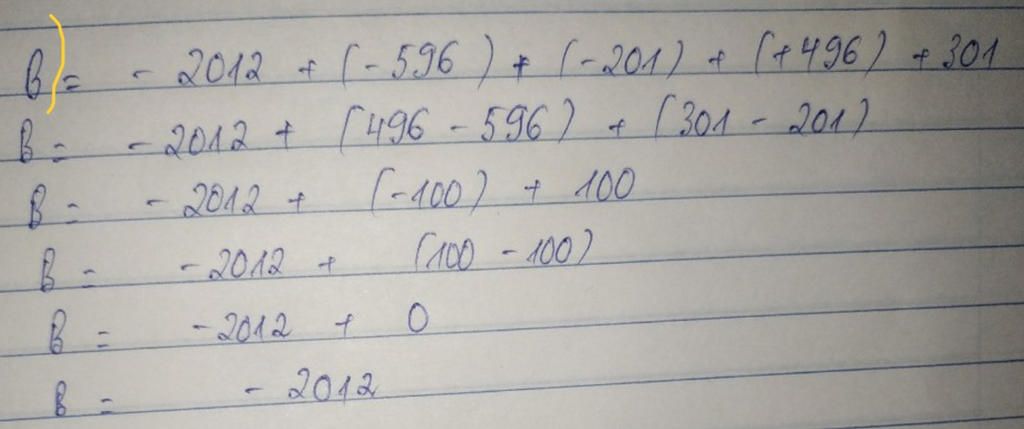 B) = - 2012 + (-596) + (-201) + (+496) + 301
B = - 2012 + (496 - 596) + (301 - 201)
B = - 2012 + (-100) + 100
B = - 2012 + (100 - 100)
B = - 2012 + 0
B = - 2012